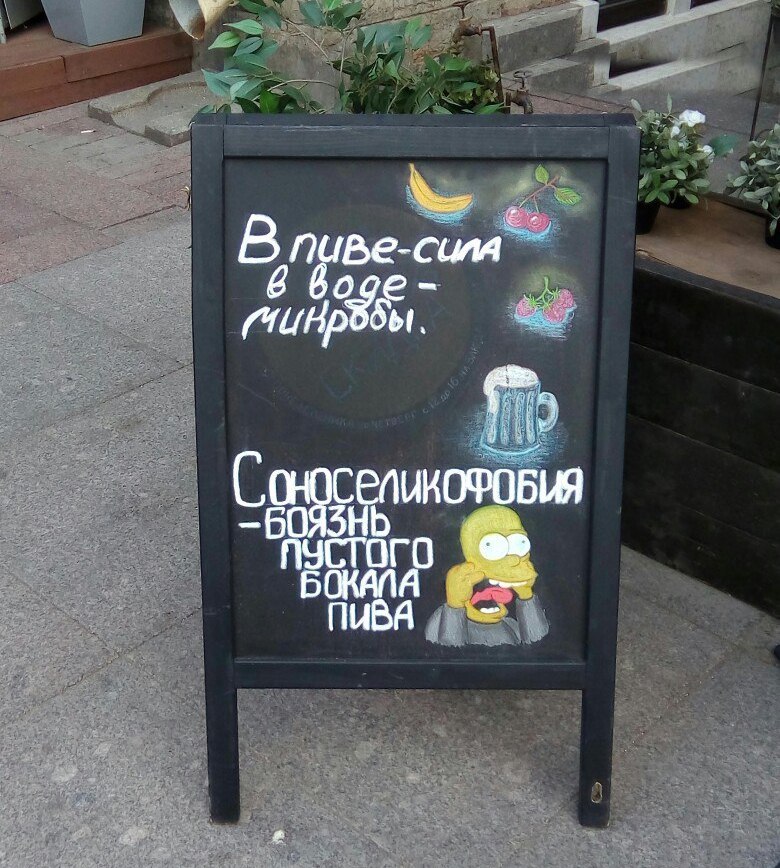 В пиве-сила
в воде-
микробы.
Соноселикофобия
-боязнь
пустого
бокала
пива